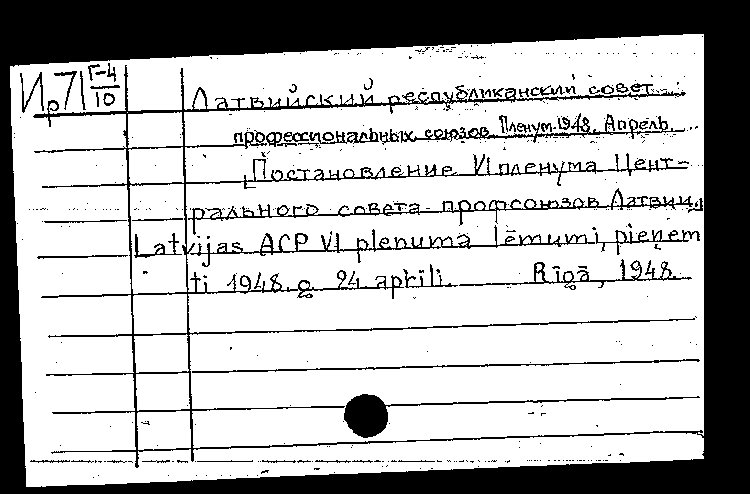 Ир7 Г-4
10
Латвийский республиканский совет
профессиональных союзов. Пленум. 1948. Апрель.
[Постановление VI пленума Цент-
рального совета профсоюзов Латвии.]
Latvijas ACP VI plenuma lēmumi, pieņem
ti 1948. g. 24. aprīlī. Rīgā, 1948.